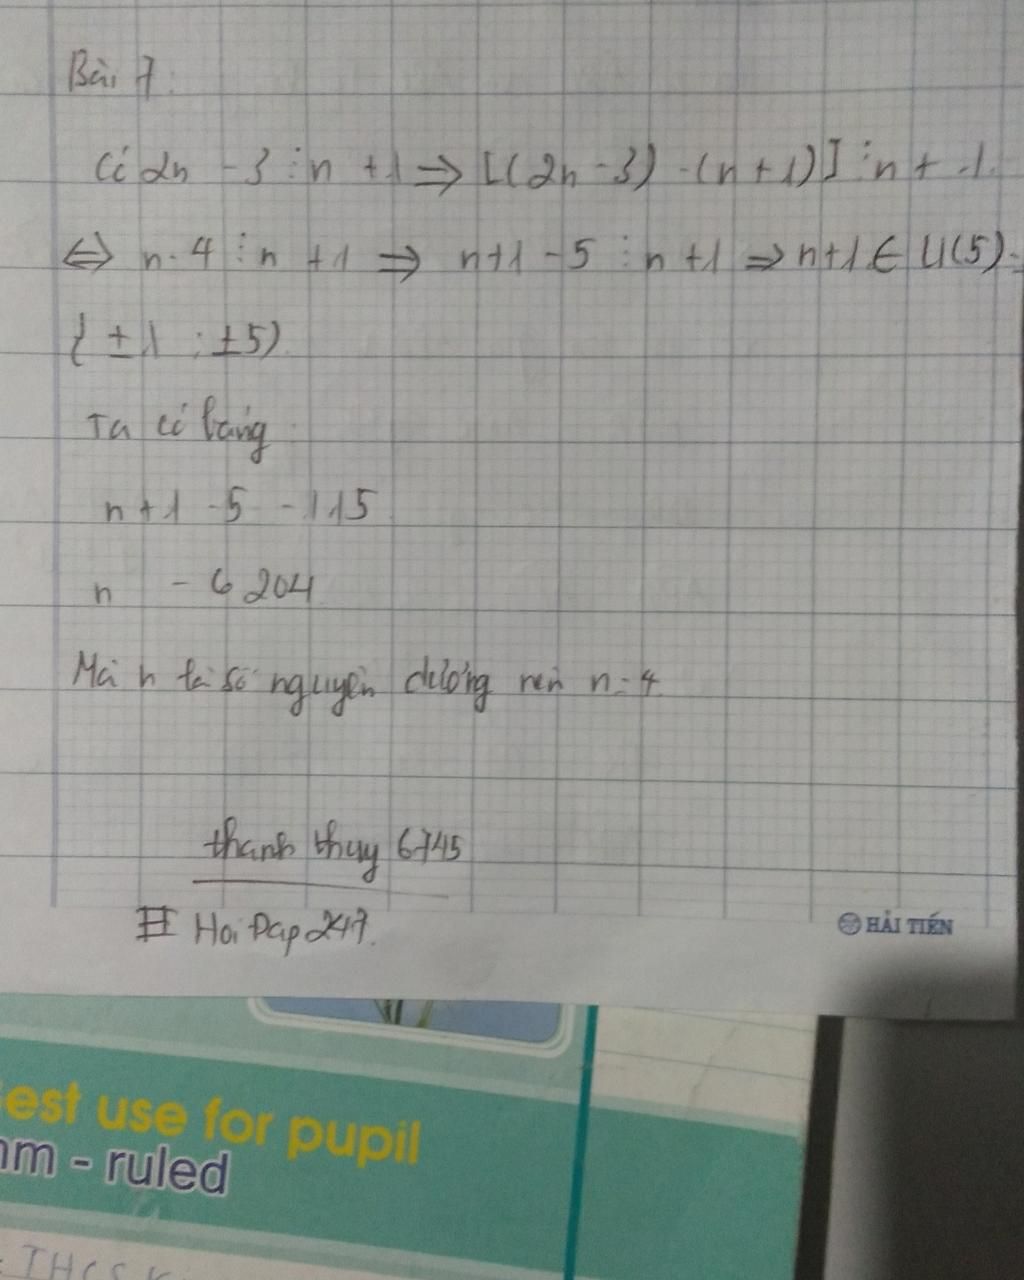 Bài 7.
Có 2n - 3 ⋮ n + 1 ⇒ [(2n - 3) - (n + 1)] ⋮ n + 1
⇔ n - 4 ⋮ n + 1 ⇒ n+1 - 5 ⋮ n + 1 ⇒ n+1 ∈ Ư(5) =
{ ±1 ; ±5}
Ta có bảng
n + 1 -5 -1 1 5
n -6 -2 0 4
Mà n là số nguyên dương nên n = 4
thanh thuy 6745
# Hoi Dap 247.
HẢI TIẾN
est use for pupil
mm - ruled
: THCS K